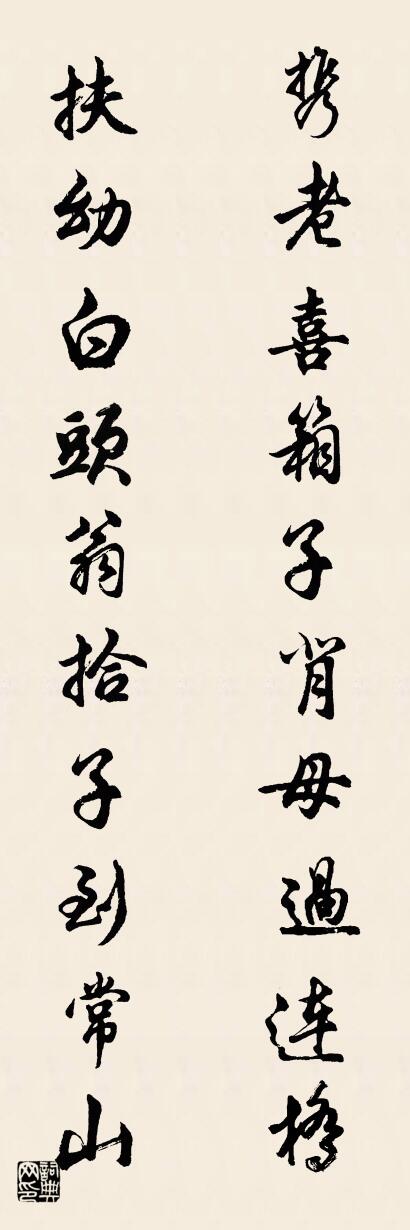 携老喜箱子肖母過连橋
扶幼白頭翁拾子到常山
詞典网印